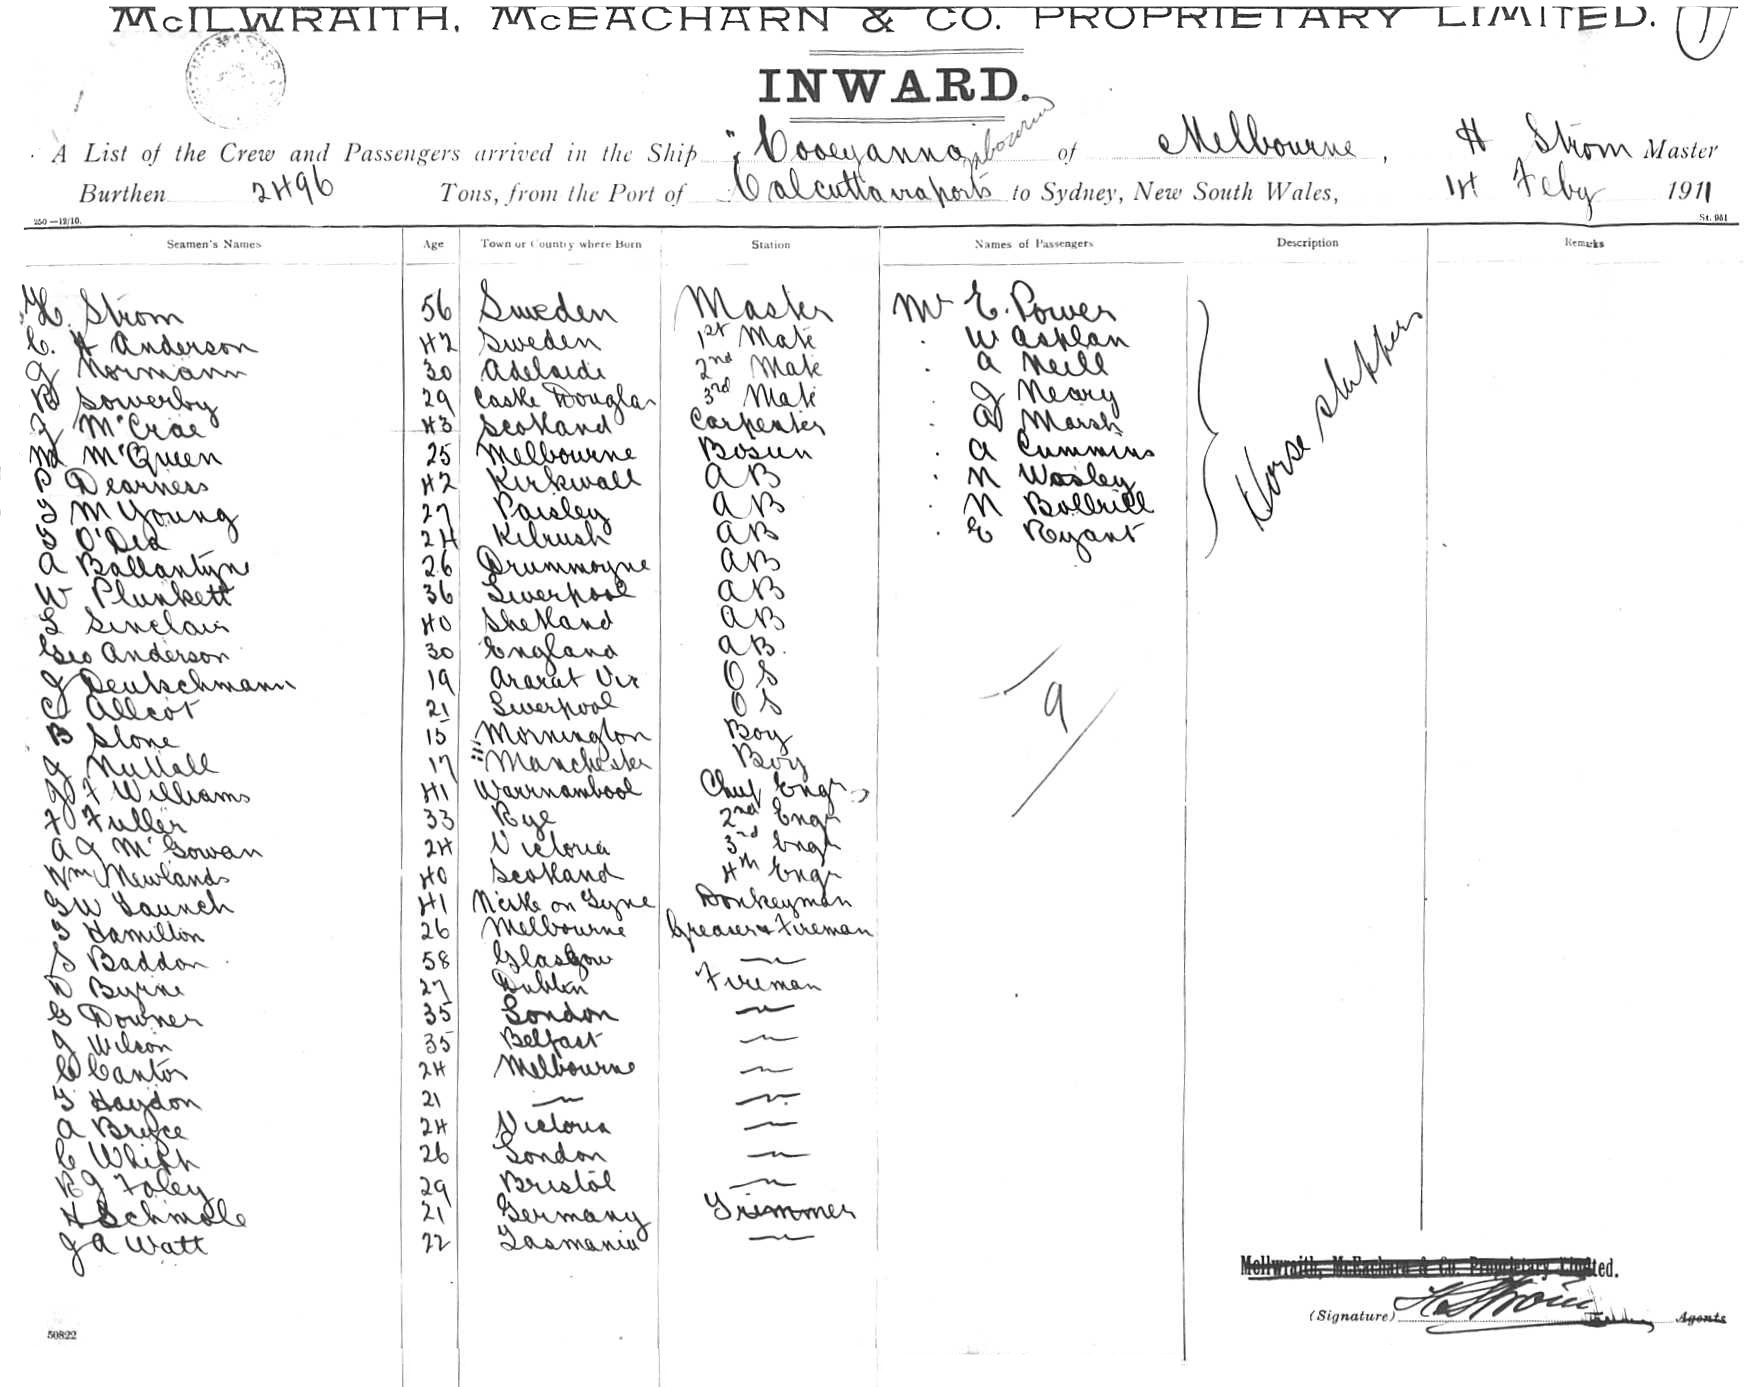 McILWRAITH, McEACHARN & CO. PROPRIETARY LIMITED. 1
INWARD.
A List of the Crew and Passengers arrived in the Ship "Cooeyanna of Melbourne, H Strom Master
Burthen 2496 Tons, from the Port of Calcutta via ports to Sydney, New South Wales, 1st Feby 1911
250—12/10. St. 951
Seamen's Names Age Town or Country where Born Station Names of Passengers Description Remarks
H. Strom 56 Sweden Master Mr E. Power Horse shippers
C. A Anderson 42 Sweden 1st Mate . W Asplan
J Normann 30 Adelaide 2nd Mate . A Neill
B Sowerby 29 Castle Douglas 3rd Mate . J Neary
J McCrae 43 Scotland Carpenter . A Marsh
M McQueen 25 Melbourne Bosun . A Cummins
P Dearness 42 Kirkwall AB . N Wosley
T M Young 27 Paisley AB . N Bollrill
T O'Dea 24 Kilrush AB . E Ryant
A Ballantyne 26 Drummoyne AB
W Plunkett 36 Liverpool AB
L Sinclair 40 Shetland AB
Geo Anderson 30 England AB.
J Deutschmann 19 Ararat Vic OS
C Allcot 21 Liverpool OS 9
B Stone 15 Mornington Boy
J Nuttall 17 Manchester Boy
J F Williams 41 Warrnambool Chief Engr
F Fuller 33 Rye 2nd Engr
A J McGowan 24 Victoria 3rd Engr
Wm Newlands 40 Scotland 4th Engr
G W Launch 41 N'castle on Tyne Donkeyman
T Hamilton 26 Melbourne Greaser & Fireman
S Baddon 58 Glasgow —
D Byrne 27 Dublin Fireman
G Downer 35 London —
J Wilson 35 Belfast —
C Cantor 24 Melbourne —
T Haydon 21 — —
A Bryce 24 Victoria —
C Whish 26 London —
R J Foley 29 Bristol —
H Schmole 21 Germany Trimmer
J A Watt 22 Tasmania —
McIlwraith, McEacharn & Co. Proprietary Limited.
(Signature) H Strom Agents
50822